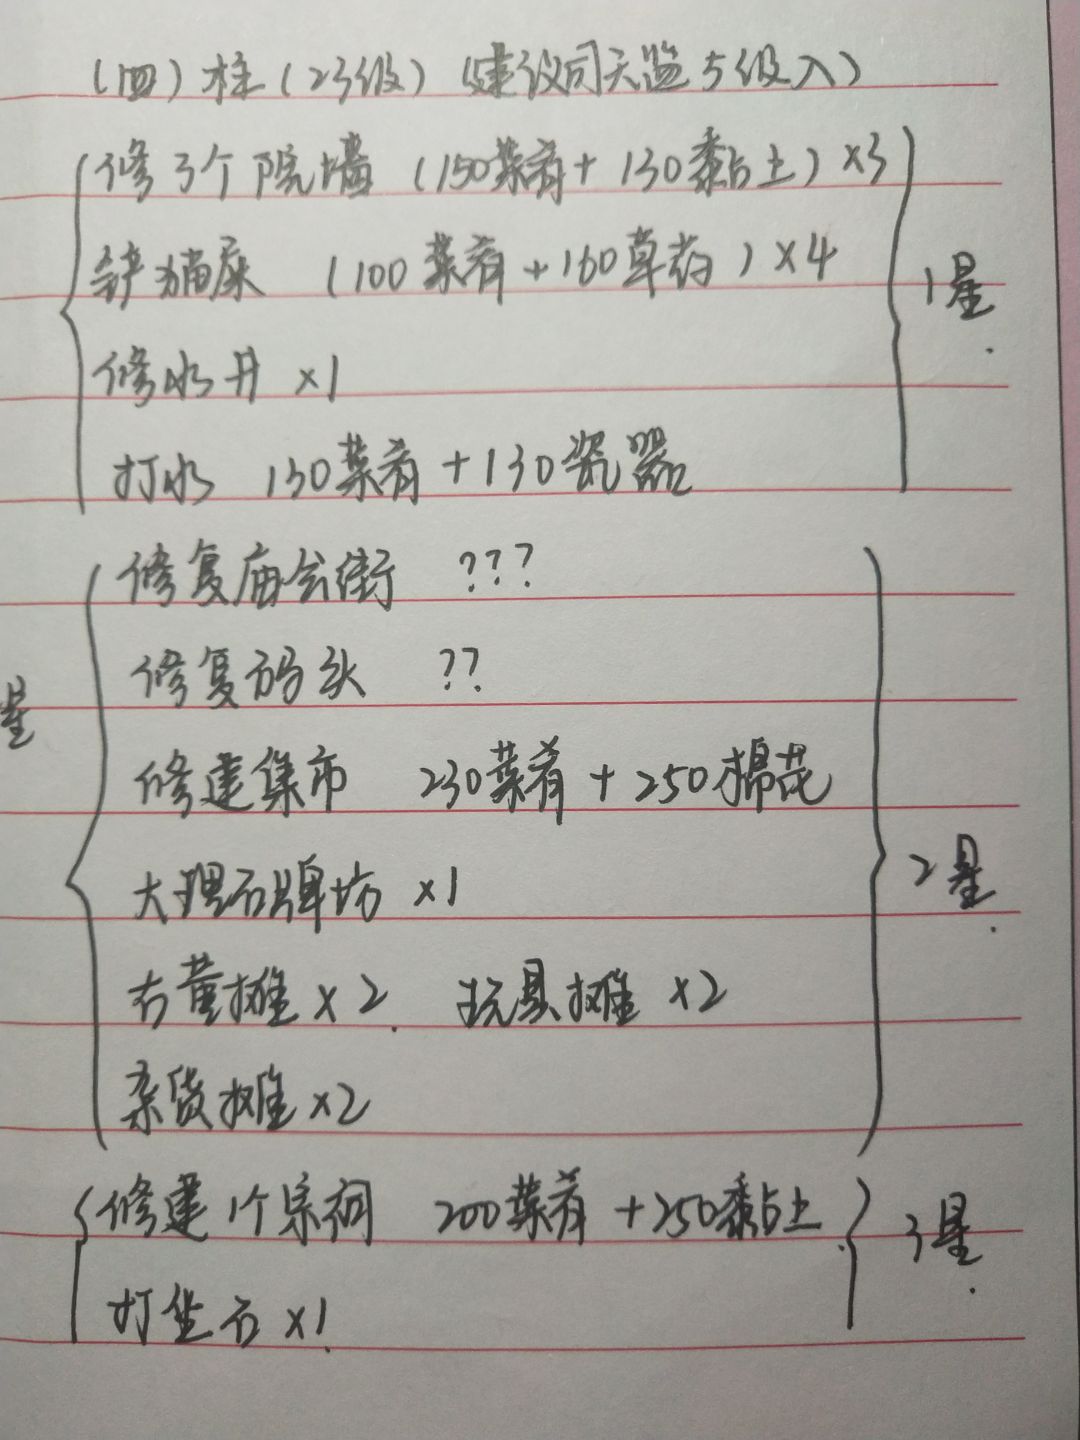 (四) 桂 (23级) (建议司天监5级入)
修3个院墙 (150菜肴+130黏土)×3
铲猫屎 (100菜肴+160草药)×4
修水井 ×1
1星.
打水 130菜肴+130瓷器
修复庙会街 ???
修复码头 ??
星
修建集市 230菜肴+250棉花
大理石牌坊 ×1
2星.
古董摊×2. 玩具摊×2
杂货摊×2
修建1个宗祠 200菜肴+250黏土.
3星.
打坐石×1.